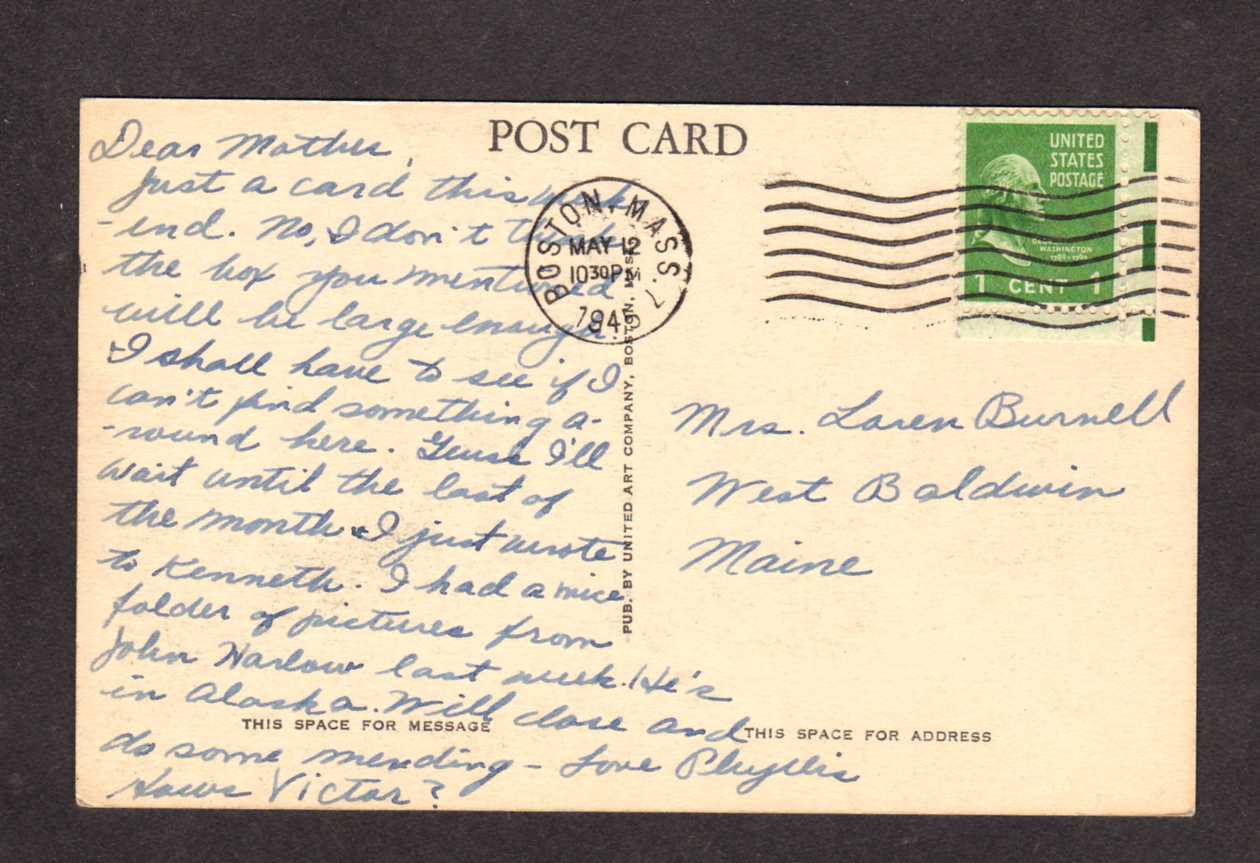 POST CARD
Dear Mother,
Just a card this week
-end. No, I don't think
the box you mentioned
will be large enough.
I shall have to see if I
can't find something a-
-round here. Guess I'll
wait until the last of
the month. I just wrote
to Kenneth. I had a nice
folder of pictures from
John Harlow last week. He's
in Alaska. Will close and
do some mending - Love Phyllis
Hows Victor?
THIS SPACE FOR MESSAGE
BOSTON, MASS. 7
MAY 12
10 30 PM
PUB. BY UNITED ART COMPANY, BOSTON, MASS.
UNITED
STATES
POSTAGE
WASHINGTON
1 CENT 1
Mrs. Loren Burnell
West Baldwin
Maine
THIS SPACE FOR ADDRESS